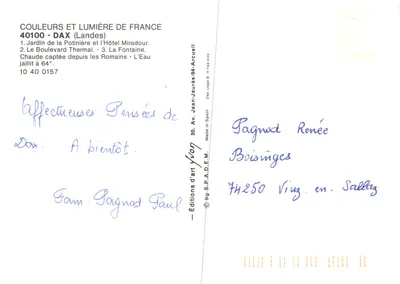 COULEURS ET LUMIÈRE DE FRANCE
40100 - DAX (Landes)
1. Jardin de la Potinière et l'Hôtel Miradour.
2. Le Boulevard Thermal. - 3. La Fontaine.
Chaude captée depuis les Romains - L'Eau
jaillit à 64°.
10 40 0157
Affectueuses Pensées de
Dax. A bientôt.
Fam. Pagnod Paul
— Editions d'art yvon, 30, Av. Jean-Jaurès-94-Arcueil
© by S.P.A.D.E.M.
Made in Spain
Pagnod Renée
Boisinges
74250 Viuz en Sallaz